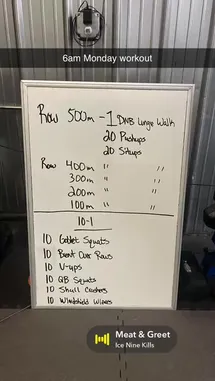 6am Monday workout
Row 500m - 1 DNB Lunge Walk
20 Pushups
20 Situps
Row 400m " "
300m " "
200m " "
100m " "
10-1
10 Goblet Squats
10 Bent Over Rows
10 V-ups
10 GB Squats
10 Skull Crushers
10 Windshield Wipers
Meat & Greet
Ice Nine Kills